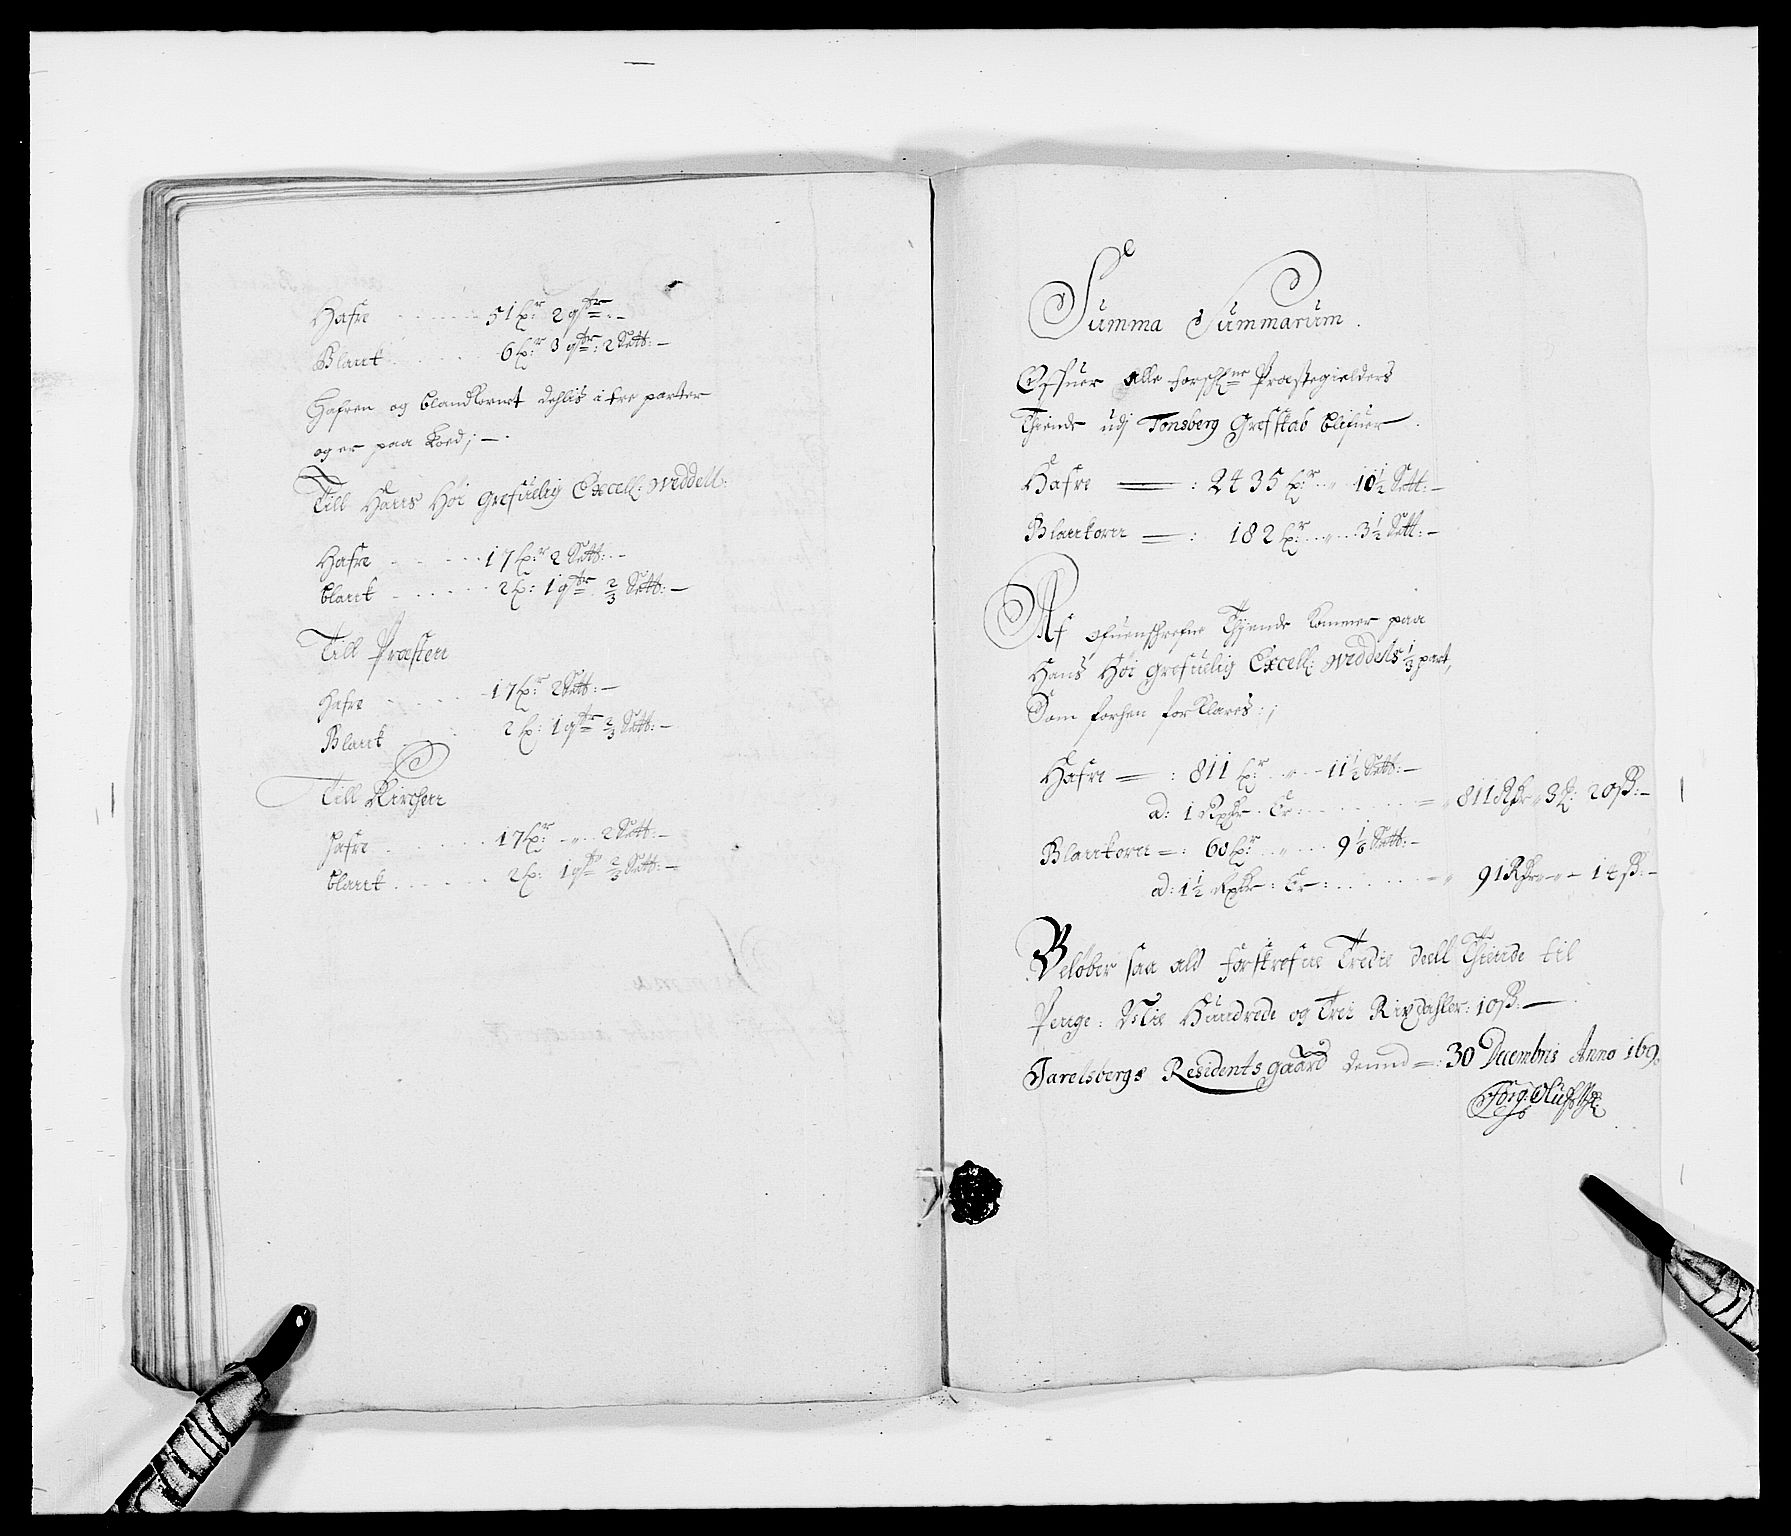 Hafre ...... 51 Tr: 2 qtr: –
Blant ...... 6 Tr: 3 qtr: 2 Sett: –
Hafren og blandkornet dehlis i tre parter
og er paa Loed; –
Till Hans Höi Grefuelig Excell: Weddell:
Hafre ..... 17 Tr: 2 Sett: –
blant ...... 2 T: 1 qtr 2/3 Sett: –
Till Præsten
Hafre ..... 17 Tr: 2 Sett: –
Blant ..... 2 T: 1 qtr 2/3 Sett: –
Till Kirchen
Hafre ...... 17 Tr: „ 2 Sett: –
blant ...... 2 T: 1 qtr 2/3 Sett: –
Summa Summarum.
Offuer alle forschne Præstegielders
Thiende udj Tonsberg Grefskab blifuer.
Hafre = : 2435 Tr: „ 10 1/2 Sett: –
Blankorn = : 182 Tr: „ 3 1/2 Sett: –
Af ofuenschrefne Thiende kommer paa
Hans Höi Grefuelig Excell: Weddels 1/3 part,
Som forhen forklares:;
Hafre = : 811 Tr: „ 11 1/2 Sett: –
ad: 1 Rdr: Er: ...... = „ 811 Rdr „ 3 : 20 ß: –
Blankorn = : 60 Tr: „ 9 1/6 Sett: –
ad: 1 1/2 Rdr: Er: ...... = „ 91 Rdr „ – 14 ß: –
Beløber saa ald forskrefne Tredie deell Thiende til
Penge: Nie Hundrede og Trei Rixdahler: 10 ß: –
Jarelsbergs Residents gaard dennd =: 30 Decembris Anno 169